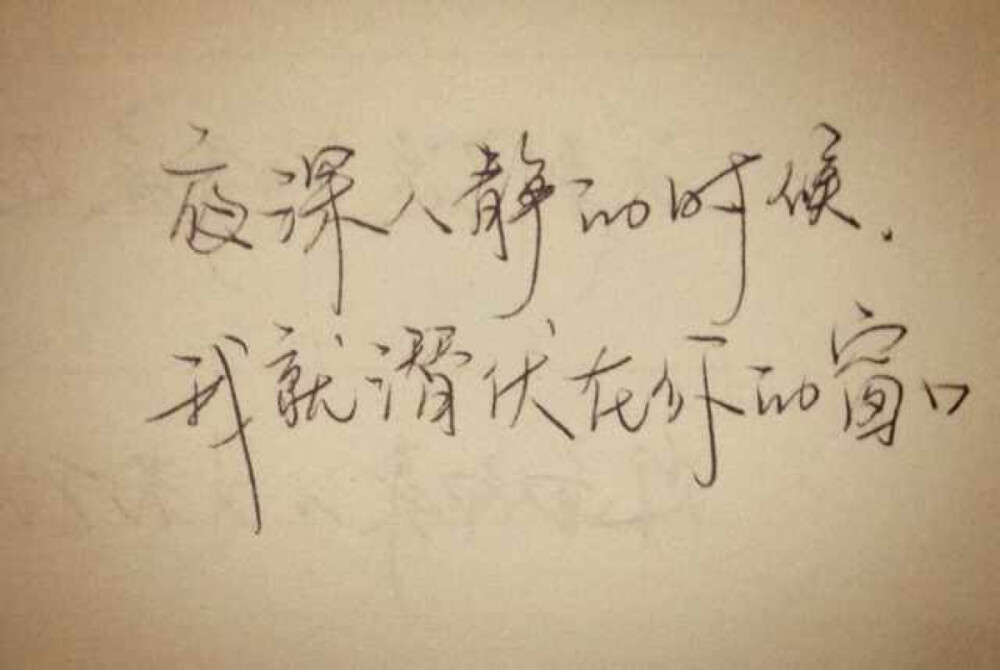 夜深人静的时候.
我就潜伏在你的窗口